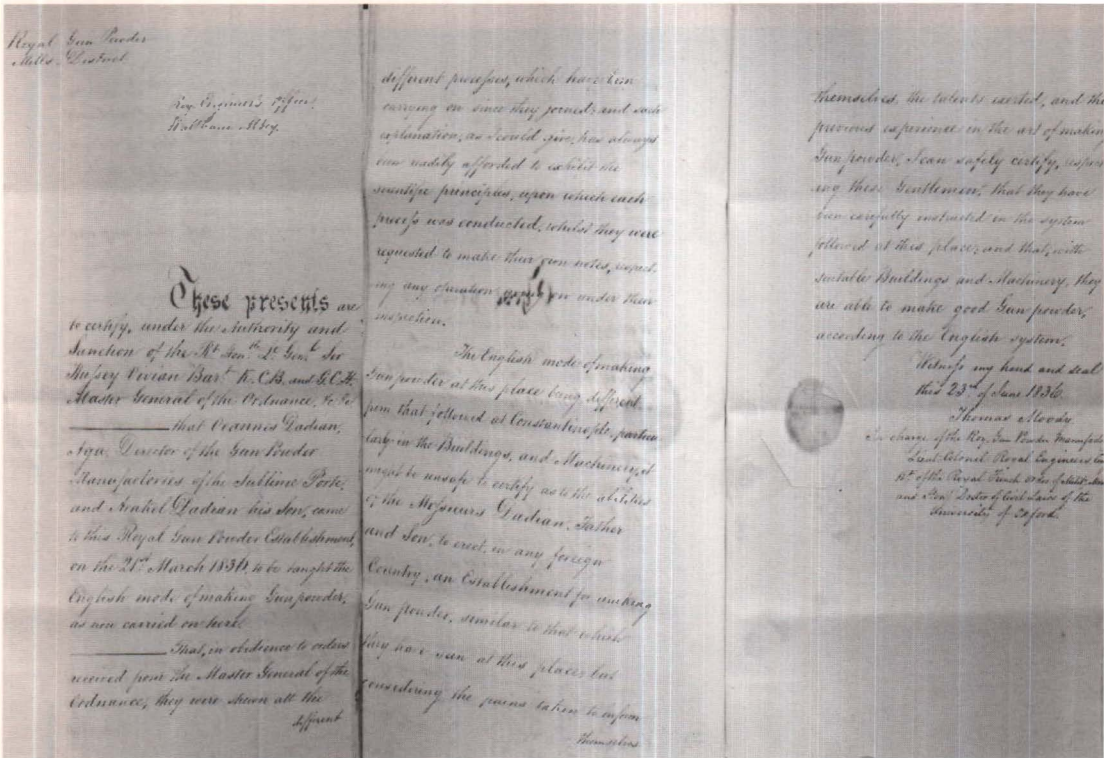 Royal Gun Powder
Mills District
Roy. Engineer's Office,
Waltham Abbey.
These presents are
to certify, under the Authority and
Sanction of the Rt Honble Lt Genl Sir
Hussey Vivian Bart K.C.B. and G.C.H.
Master General of the Ordnance, &c &c
that Ovannis Dadian,
Aga, Director of the Gun Powder
Manufactories of the Sublime Porte,
and Arakel Dadian his Son, came
to this Royal Gun Powder Establishment,
on the 21st March 1836, to be taught the
English mode of making Gunpowder,
as now carried on here.
That, in obedience to orders
received from the Master General of the
Ordnance, they were shewn all the
different
different processes, which have been
carrying on since they joined; and such
explanation, as I could give, has always
been readily afforded to exhibit the
scientific principles, upon which each
process was conducted, whilst they were
requested to make their own notes, respect-
ing any operation on under their
inspection.
The English mode of making
Gunpowder at this place being different
from that followed at Constantinople, particu
larly in the Buildings, and Machinery, it
might be unsafe to certify as to the abilities
of the Messieurs Dadian, Father
and Son, to erect, in any foreign
Country, an Establishment for making
Gun powder, similar to that which
they have seen at this place; but
considering the pains taken to inform
themselves
themselves, the talents exerted, and the
previous experience in the art of making
Gunpowder, I can safely certify, respect
ing these Gentlemen, that they have
been carefully instructed in the system
followed at this place; and that, with
suitable Buildings and Machinery, they
are able to make good Gun powder,
according to the English system.
Witness my hand and seal
this 23rd of June 1836.
Thomas Moody
In charge of the Roy. Gun Powder Manufacto
Lieut. Colonel Royal Engineers
Kt of the Royal French order of Milit.
and Hony Doctor of Civil Laws of the
University of Oxford.